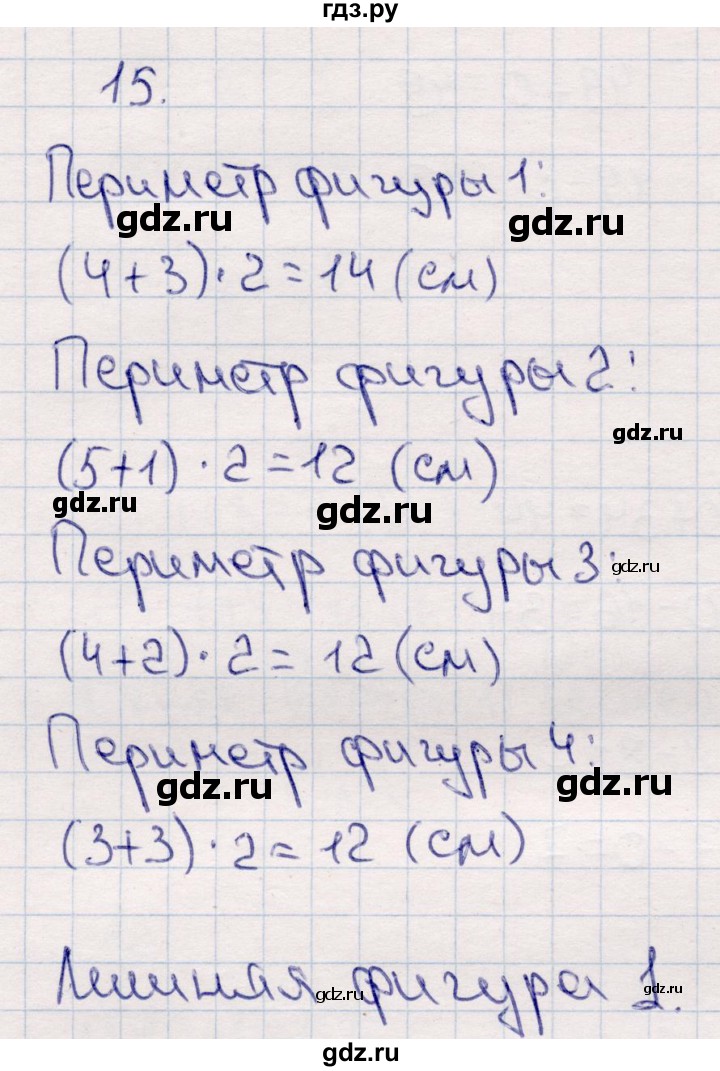 гдз.ру
15.
Периметр фигуры 1:
gdz.ru
gdz.ru
(4+3)·2=14 (см)
Периметр фигуры 2:
gdz.ru
(5+1)·2=12 (см)
gdz.ru
gdz.ru
Периметр фигуры 3:
gdz.ru
(4+2)·2=12 (см)
Периметр фигуры 4:
gdz.ru
gdz.ru
(3+3)·2=12 (см)
Лишняя фигура 1.
gdz.ru
gdz.ru
gdz.ru